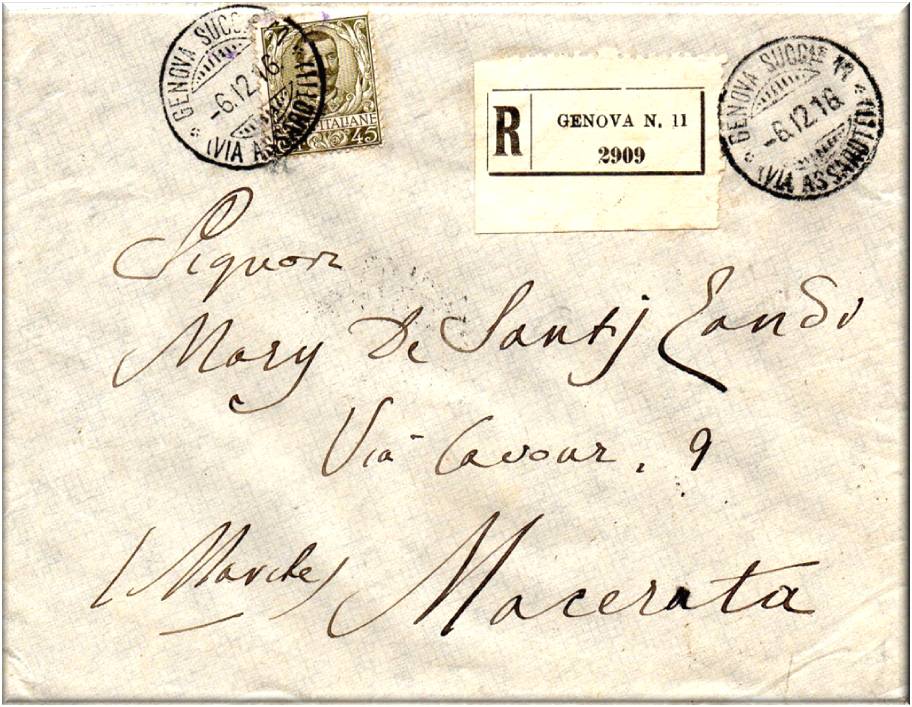 GENOVA SUCCLE 11
-6.12.16
(VIA ASSAROTTI)
ITALIANE
45
R
GENOVA N. 11
2909
GENOVA SUCCLE 11
-6.12.16
(VIA ASSAROTTI)
Signora
Mary De Santis
Via Cavour, 9
(Marche) Macerata